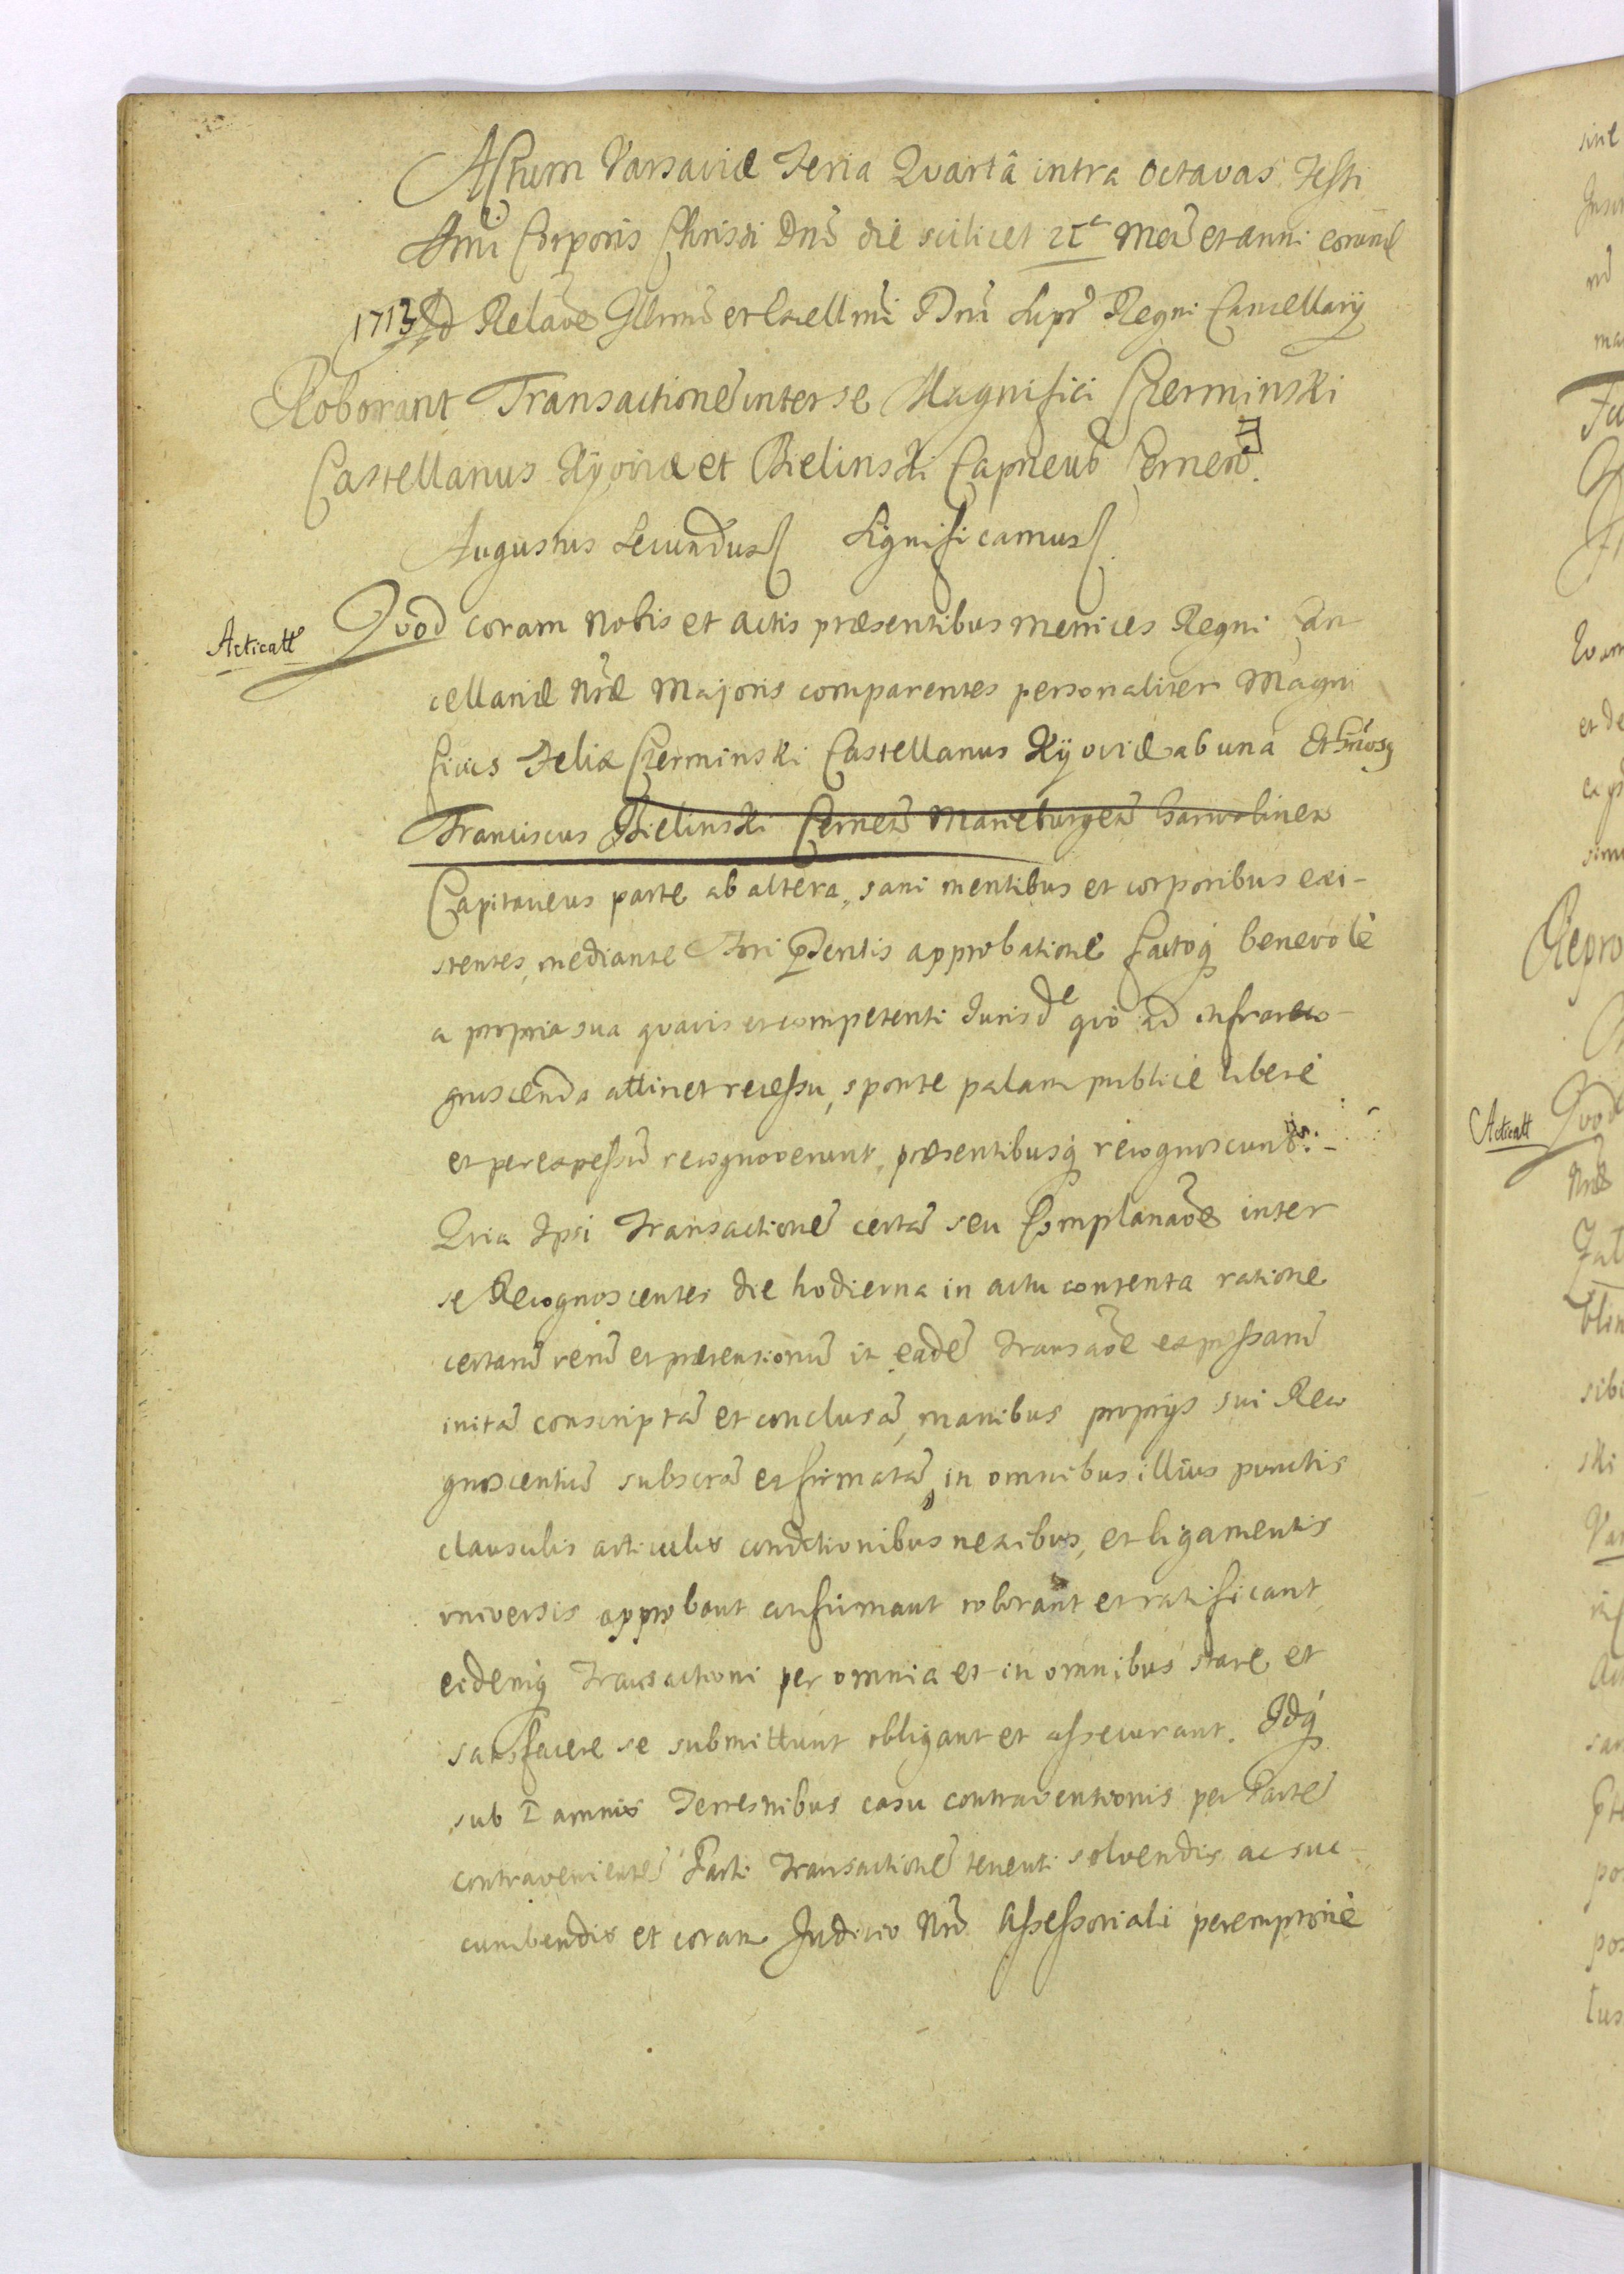 Actum Varsaviæ Feria Quartâ intra Octavas Festi
Smi Corporis Christi Dni die scilicet 21ª Men̄ et anni eorund
1713 Ad Relaōe Illmi et Excellmi Dni Supr Regni Cancellarij
Roborant Transactionē inter se Magnifici Czerminski
Castellanus Kijoviæ et Bielinski Capneus Cernen̄.
Augustus Secundus Significamus
Acticatt
Quod coram Nobis et actis præsentibus metrices Regni Can
cellariæ Nræ Majoris comparentes personaliter Magni
ficus Felix Czerminski Castellanus Kijoviæ ab una et Gnosq
Franciscus Bielinski Cernen̄ Marieburgen̄ Garwolinen
Capitaneus parte ab altera, sani mentibus et corporibus exi-
stentes, mediante Fori pdentis approbatione factoq benevolè
a propria sua quavis et competenti Jurisde quo ad infra reco-
gnoscenda attinet recessu, sponte palam publicè liberè
et per expessū recognoverunt, præsentibusq recognoscunt
Quia Ipsi Transactionē certā seu Complanaōe inter
se Recognoscentes die hodierna in actu contenta ratione
certarū rerū et prætensionū in eadē Transaōe expressarū
initā conscriptā et conclusā, manibus proprijs sui Reco
gnoscentiū subscrā et firmatā, in omnibus illius punctis
clausulis articulis conditionibus nexibus, et ligamentis
universis approbant confirmant roborant et ratificant
eidemq Transactioni per omnia et in omnibus stare et
satisfacere se submittunt obligant et assecurant. Idq
sub Damnis Terrestribus casu contraventionis per Partē
contravenientē Parti Transactionē tenenti solvendis ac suc
cumbendis et coram Judicio Nrō Assessoriali peremptoriè
Acticatt
Quod